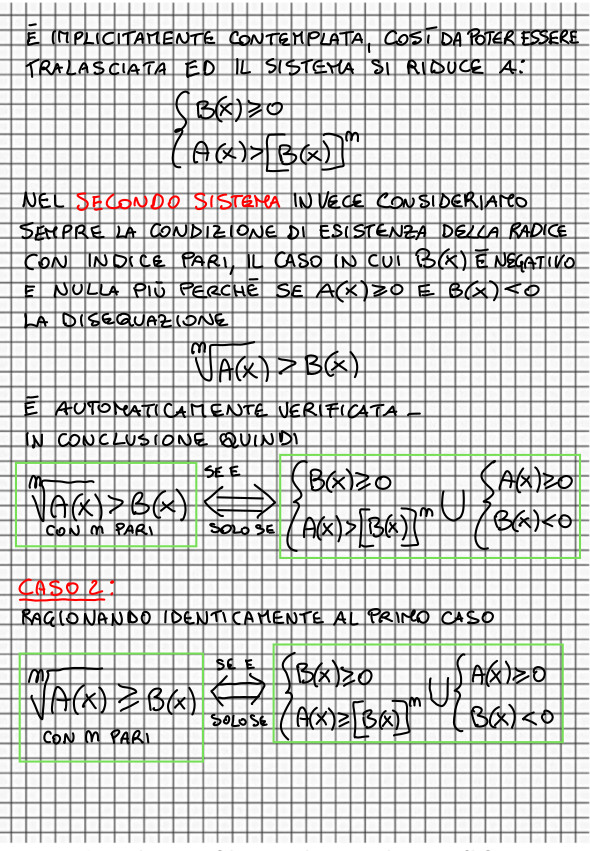 È IMPLICITAMENTE CONTEMPLATA, COSÌ DA POTER ESSERE
TRALASCIATA ED IL SISTEMA SI RIDUCE A:
{ B(x) ≥ 0
{ A(x) > [B(x)]^m
NEL SECONDO SISTEMA INVECE CONSIDERIAMO
SEMPRE LA CONDIZIONE DI ESISTENZA DELLA RADICE
CON INDICE PARI, IL CASO IN CUI B(x) È NEGATIVO
E NULLA PIÙ PERCHÈ SE A(x) ≥ 0 E B(x) < 0
LA DISEQUAZIONE
ᵐ√A(x) > B(x)
È AUTOMATICAMENTE VERIFICATA –
IN CONCLUSIONE QUINDI
ᵐ√A(x) > B(x)
CON m PARI
SE E
⟺
SOLO SE
{ B(x) ≥ 0
{ A(x) > [B(x)]^m
∪
{ A(x) ≥ 0
{ B(x) < 0
CASO 2:
RAGIONANDO IDENTICAMENTE AL PRIMO CASO
ᵐ√A(x) ≥ B(x)
CON m PARI
SE E
⟺
SOLO SE
{ B(x) ≥ 0
{ A(x) ≥ [B(x)]^m
∪
{ A(x) ≥ 0
{ B(x) < 0